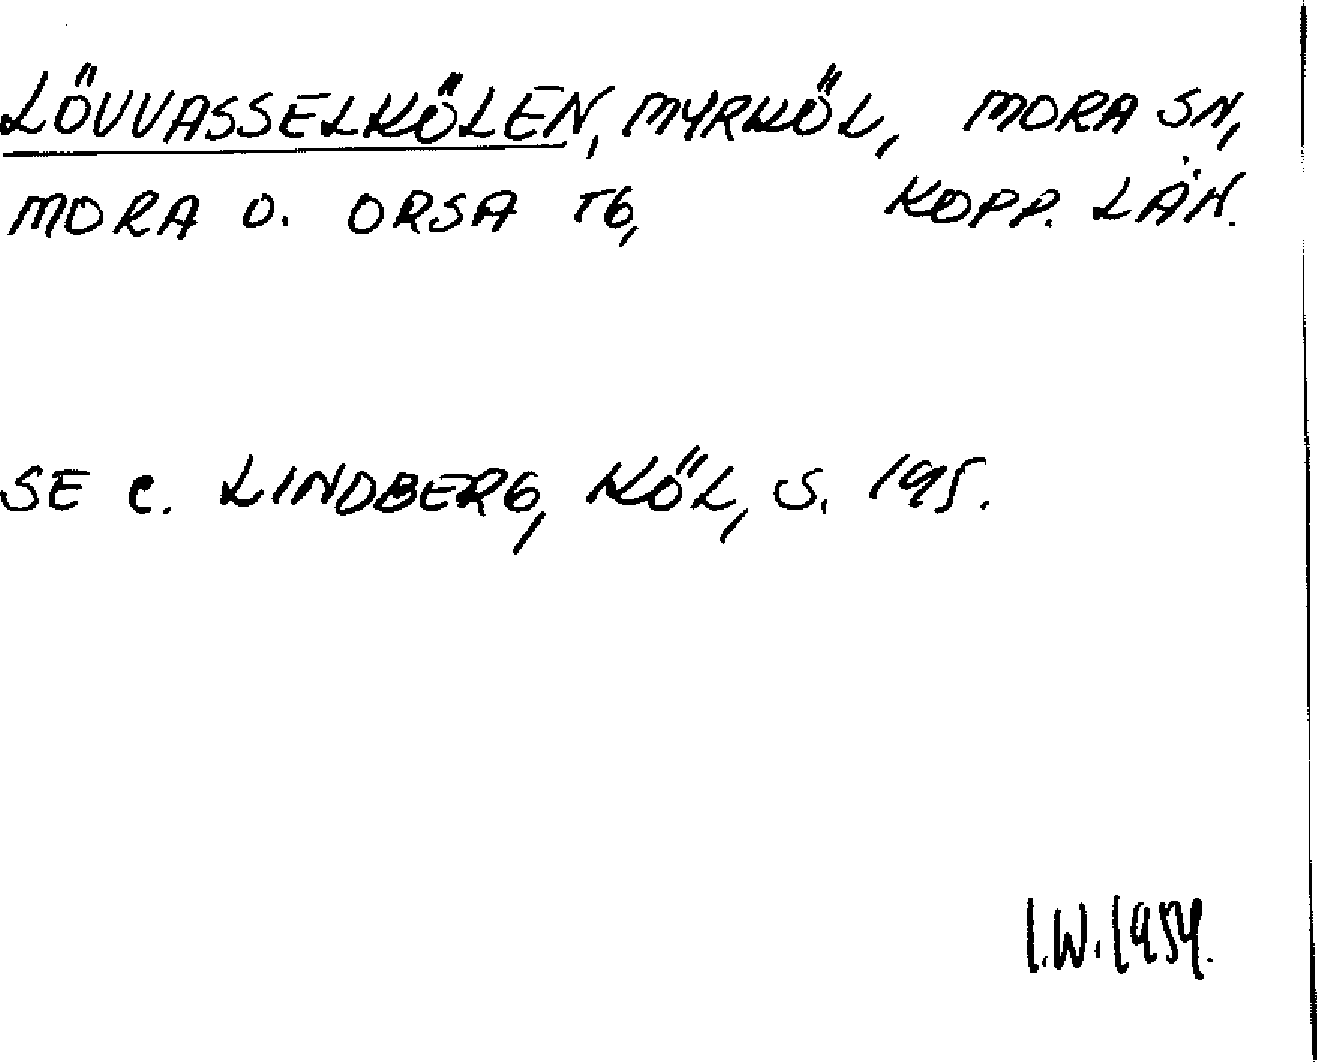 LÖVVASSELKÖLEN, MYRKÖL, MORA SN,
MORA O. ORSA TG, KOPP. LÄN.
SE C. LINDBERG, KÖL, S. 195.
I.W. 1954.